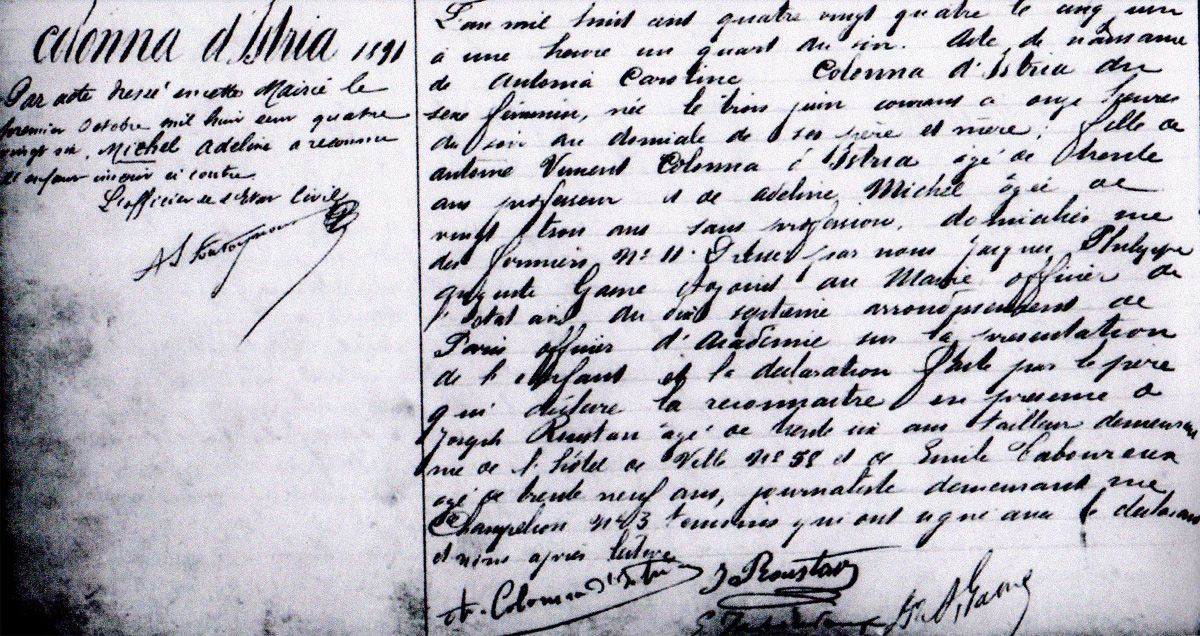 Colonna d'Istria 1891
Par acte dressé en cette Mairie le
premier Octobre mil huit cent quatre
vingt six, Michel Adeline a reconnu
l'enfant inscrit ci contre
L'officier de l'Etat Civil
L'an mil huit cent quatre vingt quatre le cinq juin
à une heure un quart du soir. Acte de naissance
de Antonia Caroline Colonna d'Istria du
sexe féminin, née le trois juin courant à onze heures
du soir au domicile de ses père et mère; fille de
Antoine Vincent Colonna d'Istria âgé de trente
ans professeur et de Adeline Michel âgée de
vingt trois ans sans profession, domiciliés rue
des N° 11. Dressé par nous Jacques Philippe
Auguste adjoint au Maire, officier de
l'état civil du septième arrondissement de
Paris officier d'Académie sur la présentation
de l'enfant et la déclaration faite par le père
qui déclare la reconnaître en présence de
Joseph Roustan âgé de trente six ans tailleur demeurant
rue de l'hôtel de Ville N° 58 et de Emile Taboureux
âgé de trente neuf ans, journaliste demeurant rue
Champollion N° 3 témoins qui ont signé avec le déclarant
et nous après lecture
Colonna d'Istria J Roustan